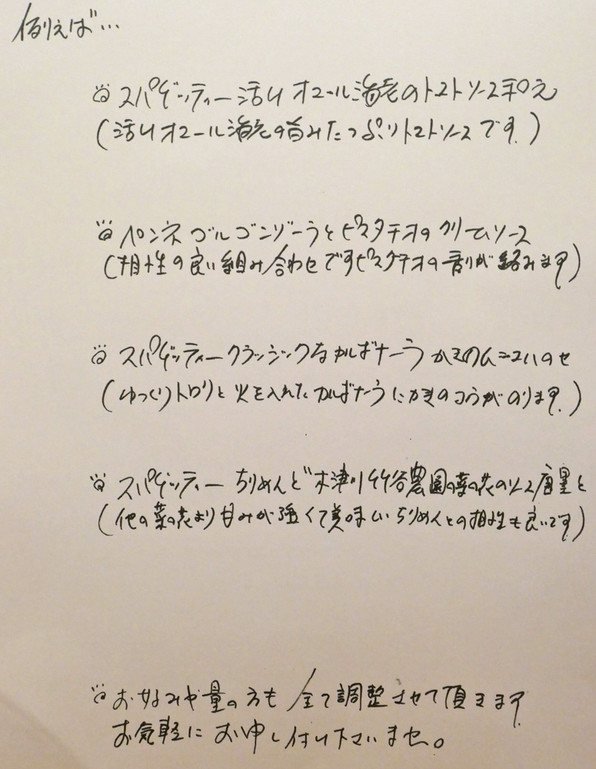 例えば…
スパゲッティー 活〆オマール海老のトマトソース和え
(活〆オマール海老の旨みたっぷりトマトソースです。)
ペンネ ゴルゴンゾーラとピスタチオのクリームソース
(相性の良い組み合わせですピスタチオの香りが絡みます)
スパゲッティークラッシックなカルボナーラ かきの
(ゆっくりトロリと火を入れたカルボナーラにかきのコクがのります。)
スパゲッティー ちりめんと木津川竹谷農園の菜の花のソース
(他の菜の花より甘みが強くて美味しい ちりめんとの相性も良いです)
お好みや量の方も全て調整させて頂きます
お気軽にお申し付け下さいませ。